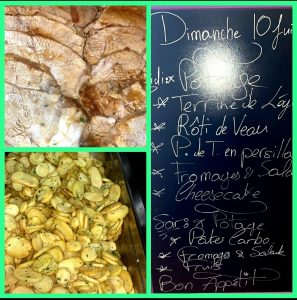 Dimanche 10 Jui
Potage
* Terrine de Lég
* Rôti de Veau
* P. de T. en persilla
* Fromages & Sala
* Cheesecake
Soir & Potage
* Pates Carbo
* Fromage & Salade
* Fruits
Bon Appétit